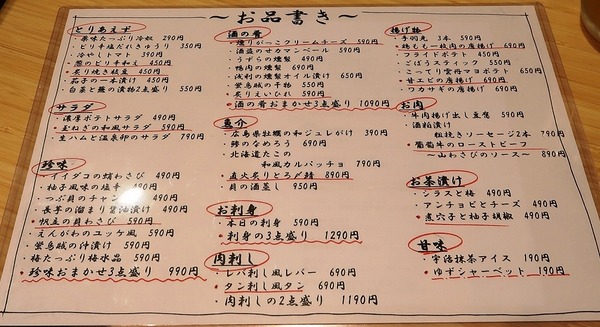 ～お品書き～
とりあえず
・薬味たっぷり冷奴 290円
・ピリ辛塩だれきゅうり 350円
・冷やしトマト 390円
・葱のピリ辛和え 450円
・炙り焼き枝豆 450円
・茄子の一本漬け 450円
・白菜と蕪の漬物2点盛り 550円
サラダ
・濃厚ポテトサラダ 490円
・玉ねぎの和風サラダ 590円
・生ハムと温泉卵のサラダ 790円
珍味
・イイダコの蛸わさび 490円
・柚子風味の塩辛 490円
・つぶ貝のチャンジャ 490円
・長芋の溜まり醤油漬け 490円
・帆立の貝わさび 590円
・えんがわのユッケ風 590円
・蛍烏賊の沖漬け 590円
・梅たっぷり梅水晶 590円
・珍味おまかせ3点盛り 990円
酒の肴
・燻りがっこクリームチーズ 590円
・酒盗のせカマンベール 590円
・うずらの燻製 490円
・鴨肉の燻製 690円
・浅利の燻製オイル漬け 650円
・蛍烏賊の干物 550円
・炙りえいひれ 590円
・酒の肴おまかせ3点盛り 1090円
魚介
・広島県牡蠣の和ジュレがけ 390円
・鯵のなめろう 690円
・北海道たこの
和風カルパッチョ 790円
・直火炙りとろ〆鯖 890円
・貝の酒蒸し 950円
お刺身
・本日の刺身 590円
・刺身の3点盛り 1290円
肉刺し
・レバ刺し風レバー 690円
・タン刺し風タン 690円
・肉刺しの2点盛り 1190円
揚げ物
・手羽先 3本 590円
・鶏もも一枚肉の唐揚げ 690円
・フライドポテト 450円
・ごぼうスティック 550円
・こってり雲丹マヨポテト 650円
・甘エビの唐揚げ 690円
・ワカサギの唐揚げ 690円
お肉
・牛肉揚げ出し豆腐 590円
・酒粕漬け
粗挽きソーセージ2本 790円
・葡萄牛のローストビーフ
～山わさびのソース～ 890円
お茶漬け
・シラスと梅 490円
・アンチョビとチーズ 490円
・煮穴子と柚子胡椒 490円
甘味
・宇治抹茶アイス 190円
・ゆずシャーベット 190円